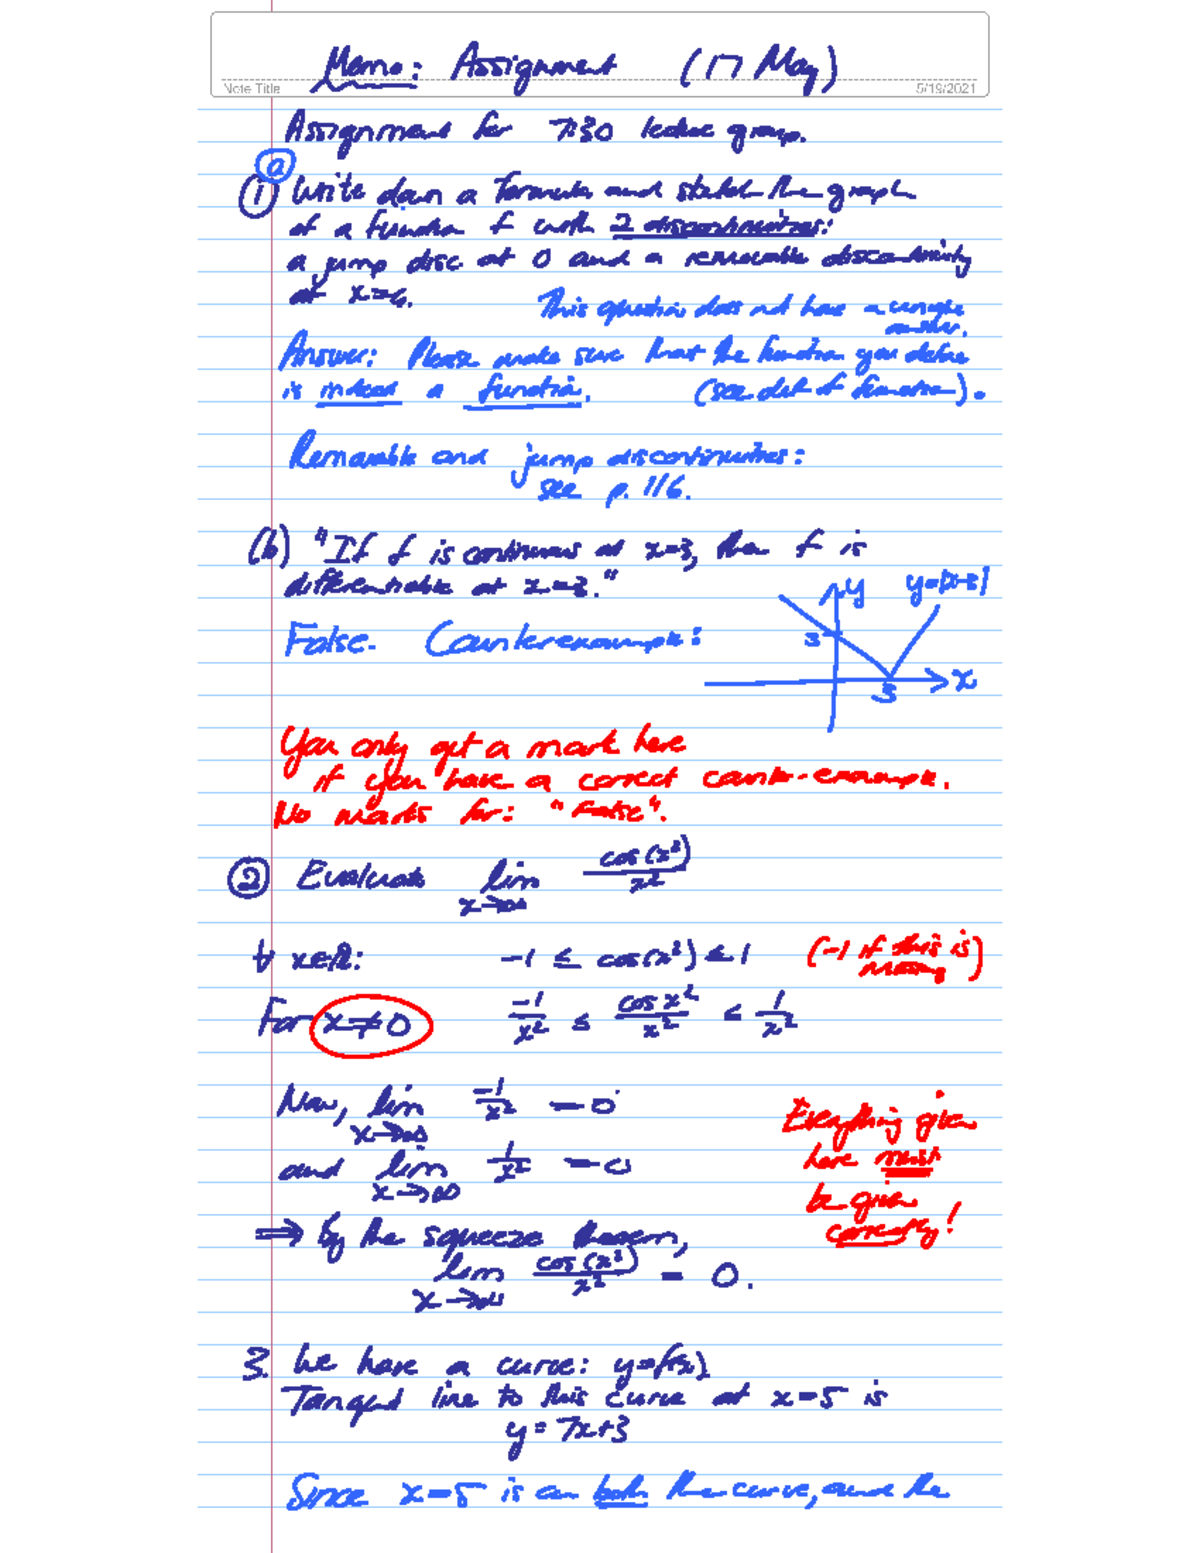 Memo: Assignment (17 May)
Note Title 5/19/2021
Assignment for 7:30 lecture group.
① ⓐ Write down a formula and sketch the graph
of a function f with 2 discontinuities:
a jump disc at 0 and a removable discontinuity
at x=4.
This question does not have a unique
answer.
Answer: Please make sure that the function you define
is indeed a function. (see def of function).
Removable and jump discontinuities:
see p. 116.
(b) "If f is continuous at x=3, then f is
differentiable at x=3."
y y=|x-3|
False. Counterexample:
3
x
3
You only get a mark here
if you have a correct counter-example.
No marks for: "False".
② Evaluate lim x→∞ cos(x²)/x²
∀ x∈ℝ: -1 ≤ cos(x²) ≤ 1 (-1 if this is
missing)
For x≠0 -1/x² ≤ cos x²/x² ≤ 1/x²
Now, lim x→∞ -1/x² = 0
Everything given
and lim x→∞ 1/x² = 0
here must
be given
correctly!
⇒ by the squeeze theorem,
lim x→∞ cos(x²)/x² = 0.
3. We have a curve: y=f(x).
Tangent line to this curve at x=5 is
y=7x+3
Since x=5 is on both the curve, and the